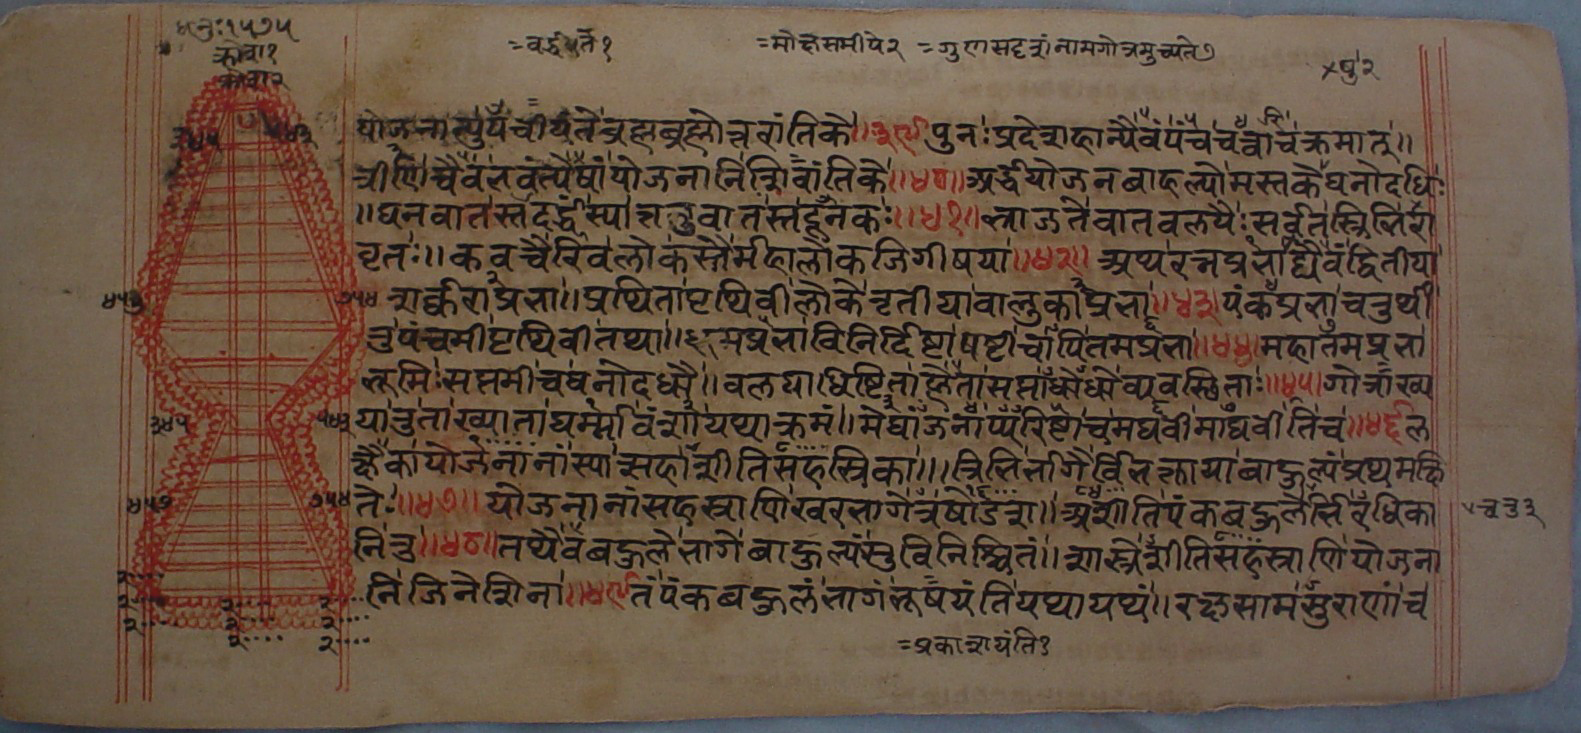 क्रोश१
क्रोश२
=वर्द्धंते१
=मोक्षसमीपे२
=गुणसदृशंनामगोत्रमुच्यते७
योजनान्युपचीयंतेब्रह्मब्रह्मोत्तरांतिके॥३९॥पुनःप्रदेशहान्यैवंपंचचत्वारिचक्रमात्॥
त्रीणिचैवभवंत्येषांयोजनानिशिवांतिके॥४०॥अर्द्धयोजनबाहल्योमस्तकेघनोदधिः
॥घनवातस्तदर्द्धंस्यात्तनुवातस्तदूनकः॥४१॥भ्राजतेवातवलयैःसर्वतस्त्रिभिरा
वृतः॥कवचैरिवलोकस्तैर्महालोकजिगीषया॥४२॥अथरत्नप्रभाद्यैवंद्वितीया
शर्कराप्रभा॥प्रथितापृथिवीलोकेतृतीयावालुकाप्रभा॥४३॥पंकप्रभाचतुर्थी
तुपंचमीपृथिवीतथा॥धूमप्रभाविनिर्दिष्टाषष्टीचापितमप्रभा॥४४॥महातमप्रभा
भूमिःसप्तमीचघनोदधौ॥वलयाधिष्टिताह्येताःसप्ताधोधोव्यवस्थिताः॥४५॥गोत्राख्य
यातुताख्याताघर्म्मावंशायथाक्रमं॥मेघांजनाप्यरिष्टाचमघवीमाघवीतिच॥४६॥ल
क्षैकायोजनानांस्यात्सहाशीतिसहस्त्रिका॥त्रिभिर्भागैर्विभक्तायाबाहुल्यंप्रथमक्षि
तेः॥४७॥योजनानांसहस्त्राणिखरभागेत्रषोडश॥अशीतिपंकबहुलेभिरधिका
नितु॥४८॥तथैवबहुलेभागेबाहुल्यंसुविनिश्चितं॥शास्त्रेशीतिसहस्त्राणियोजना
निजिनेशिना॥४९॥तंपंकबहुलंभागंभूषयंतियथायथं॥रक्षसामसुराणांच
=प्रकाशयंति१